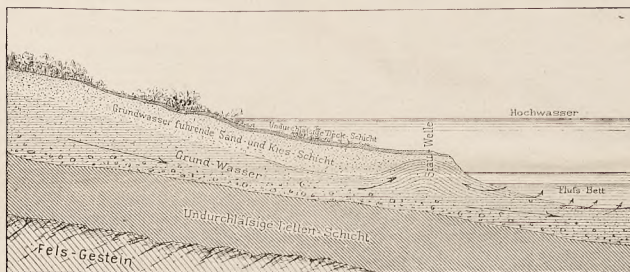 Hochwasser
Undurchläßige Deck-Schicht
Grundwasser führende Sand- und Kies-Schicht
Stau-Welle
Grund-Wasser
Fluſs Bett
Undurchläſsige Letten-Schicht
Fels-Gestein